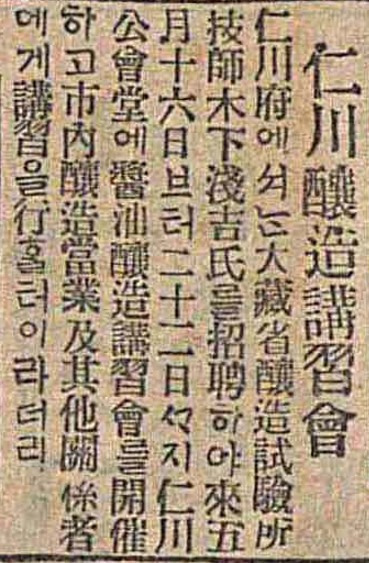 仁川釀造講習會
仁川府에셔는大藏省釀造試驗所
技師木下淺吉氏를招聘하야來五
月十六日브터二十二日ᄭᅡ지仁川
公會堂에醬油釀造講習會를開催
하고市內釀造當業及其他關係者
에게講習을行홀터이라더라